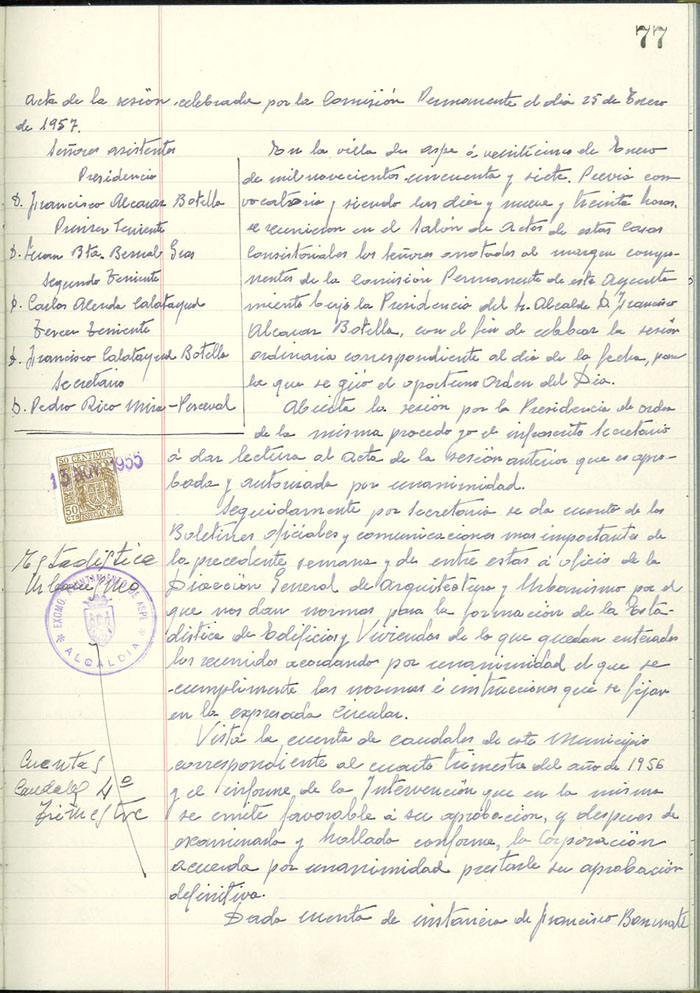 77
Acta de la sesión celebrada por la Comisión Permanente el dia 25 de Enero
de 1957.
Señores asistentes
Presidencia
D. Francisco Alcaraz Botella
Primer Teniente
D. Juan Bta. Bernal Gras
Segundo Teniente
D. Carlos Alenda Calatayud
Tercer Teniente
D. Francisco Calatayud Botella
Secretario
D. Pedro Rico Mira-Perceval
En la villa de Aspe á veinticinco de Enero
de mil novecientos cincuenta y siete. Previa con
vocatoria y siendo las diez y nueve y treinta horas,
se reunieron en el Salón de Actos de estas Casas
Consistoriales los señores anotados al margen compo-
nentes de la Comisión Permanente de este Ayunta
miento bajo la Presidencia del Sr. Alcalde D. Francisco
Alcaraz Botella, con el fin de celebrar la sesión
ordinaria correspondiente al dia de la fecha, para
la que se giró el oportuno Orden del Dia.
Abierta la sesión por la Presidencia de orden
de la misma procedo yo el infrascrito Secretario
á dar lectura al acta de la sesión anterior que es apro-
bada y autorizada por unanimidad.
50 CENTIMOS
50
13 NOV. 1955
Seguidamente por Secretaria se da cuenta de los
Boletines oficiales y comunicaciones mas importantes de
la precedente semana y de entre estas á oficio de la
Dirección General de Arquitectura y Urbanismo por el
que nos dan normas para la formación de la Esta-
distica de Edificios y Viviendas de lo que quedan enterados
los reunidos acordando por unanimidad el que se
cumplimente las normas é instrucciones que se fijan
en la expresada Circular.
Estadistica
EXCMO. AYUNTAMIENTO DE ASPE
ALCALDIA
Vista la cuenta de caudales de este Municipio
correspondiente al cuarto trimestre del año de 1956
y el informe de la Intervención que en la misma
se emite favorable á su aprobación, y despues de
examinada y hallada conforme, la Corporación
acuerda por unanimidad prestarle su aprobación
definitiva.
Cuentas
Caudales 4º
Trimestre
Dada cuenta de instancia de Francisco